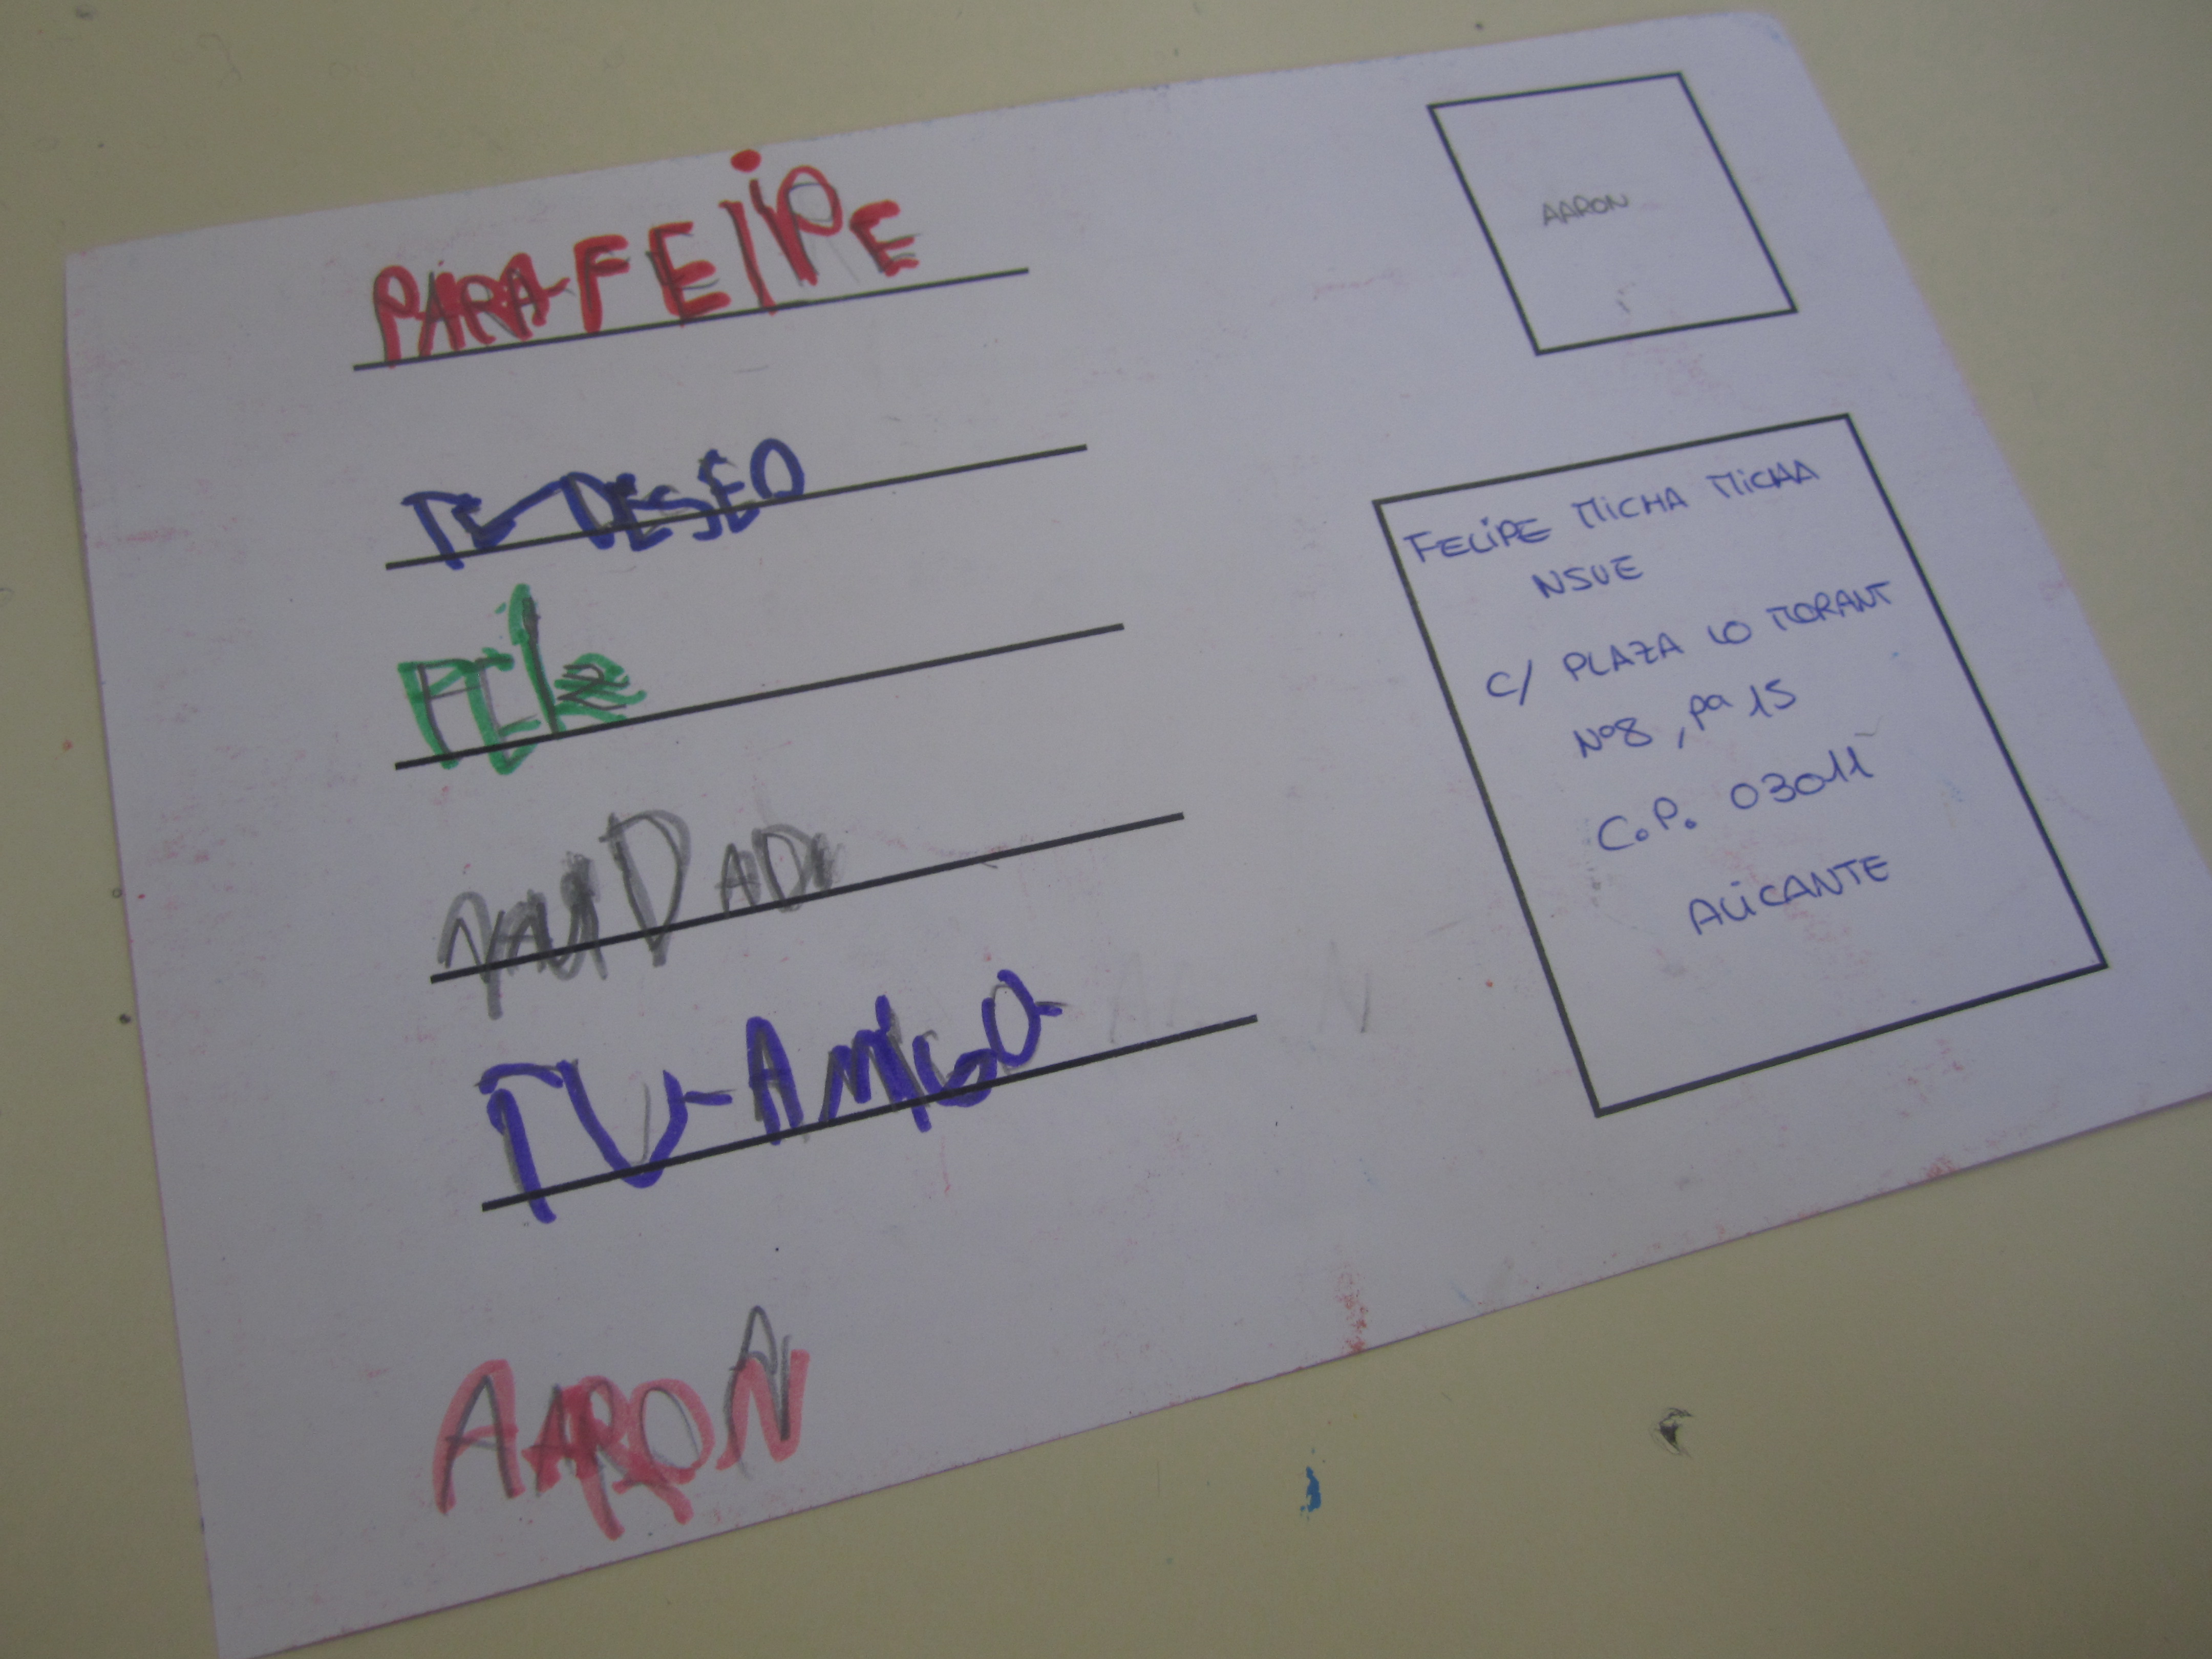 PARA-FElIPE
TE-DESEO
FElz
NAUIDAD
TU-AMiGO-
AARON
AARON
FELiPE MiCHA MiCHA
NSUE
C/ PLAZA LO MORANT
Nº8, pª 15
C.P. 03011
ALiCANTE